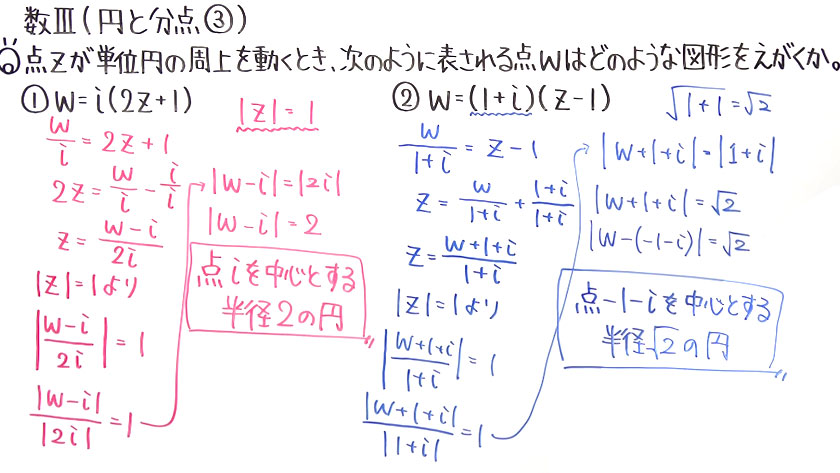 数Ⅲ(円と分点③)
◎点zが単位円の周上を動くとき、次のように表される点wはどのような図形をえがくか。
①w=i(2z+1)
|z|=1
w/i=2z+1
2z=w/i-i/i
z=w-i/2i
|z|=1より
|w-i/2i|=1
|w-i|/|2i|=1
|w-i|=|2i|
|w-i|=2
点iを中心とする
半径2の円
②w=(1+i)(z-1)
√1+1=√2
w/1+i=z-1
z=w/1+i+1+i/1+i
z=w+1+i/1+i
|z|=1より
|w+1+i/1+i|=1
|w+1+i|/|1+i|=1
|w+1+i|=|1+i|
|w+1+i|=√2
|w-(-1-i)|=√2
点-1-iを中心とする
半径√2の円